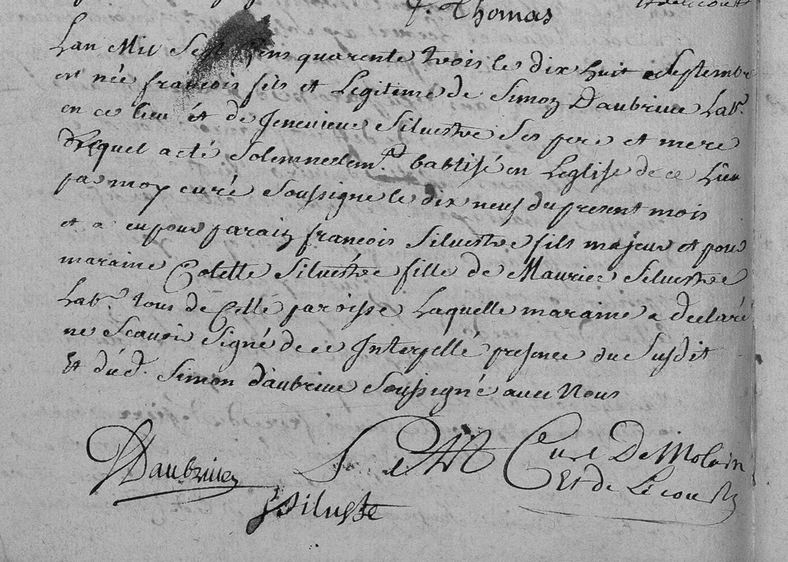 f. Thomas
Lan Mil Sept Cens quarente trois le dix huit Septembre
est née françois fils et Legitime de Simon Daubrive Labr.
en ce lieu et de Jenevieve Silvestre Ses pere et mere
Lequel a eté Solemnellemt. baptisé en Leglise de ce Lieu
par moy curé Soussigné le dix neuf du present mois
et a eu pour parain françois Silvestre fils majeur et pour
maraine Colette Silvestre fille de Maurice Silvestre
Labr. tous de Cette paroisse Laquelle maraine a declaré
ne Scavoir Signé de ce Interpellé presence du Susdit
Et dud. Simon daubrive Soussigné avec Nous
Daubrive Curé De Molain
Silvestre Et de Lecourt